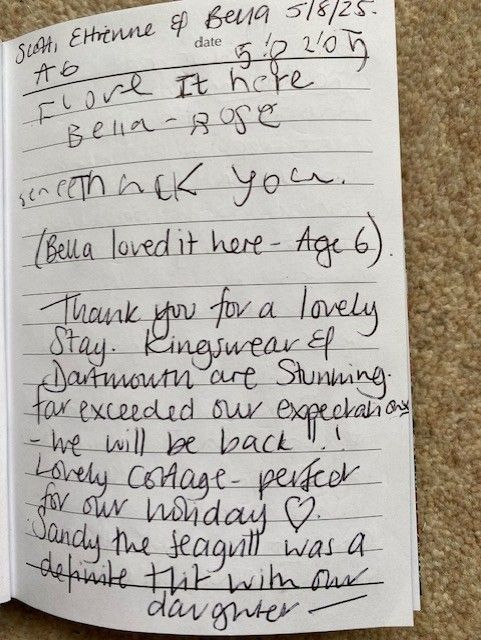 Scott, Ethienne & Bella 5/8/25.
date
A6
I love It here
Bella-Rose
Thank you.
(Bella loved it here - Age 6)
Thank you for a lovely
Stay. Kingswear &
Dartmouth are Stunning.
far exceeded our expectations
- we will be back!!
Lovely Cottage - perfect
for our holiday ♡.
Sandy the Seagull was a
definite Hit with our
daughter —